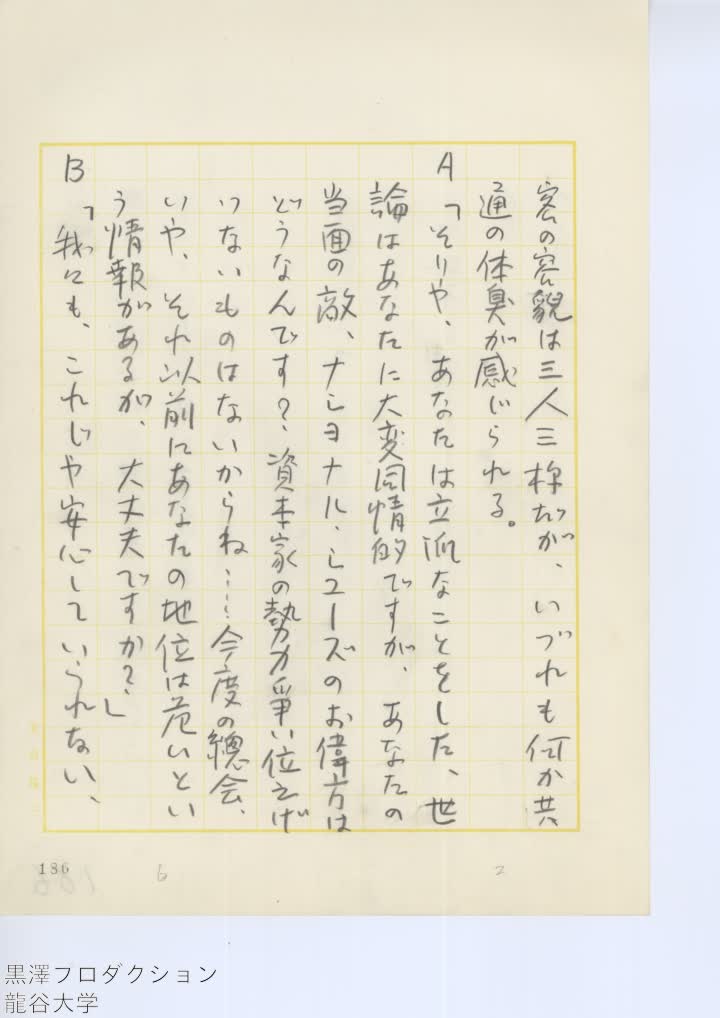 客の容貌は三人三様だが、いづれも何か共
通の体臭が感じられる。
A「そりや、あなたは立派なことをした、世
論はあなたに大変同情的ですが、あなたの
当面の敵、ナショナル・シューズのお偉方は
どうなんです?、資本家の勢力争い位えげ
つないものはないからね……今度の總会、
いや、それ以前にあなたの地位は危いとい
う情報があるが、大丈夫ですか?」
B「我にも、これじや安心していられない、
186
6
2
黒澤プロダクション
龍谷大学